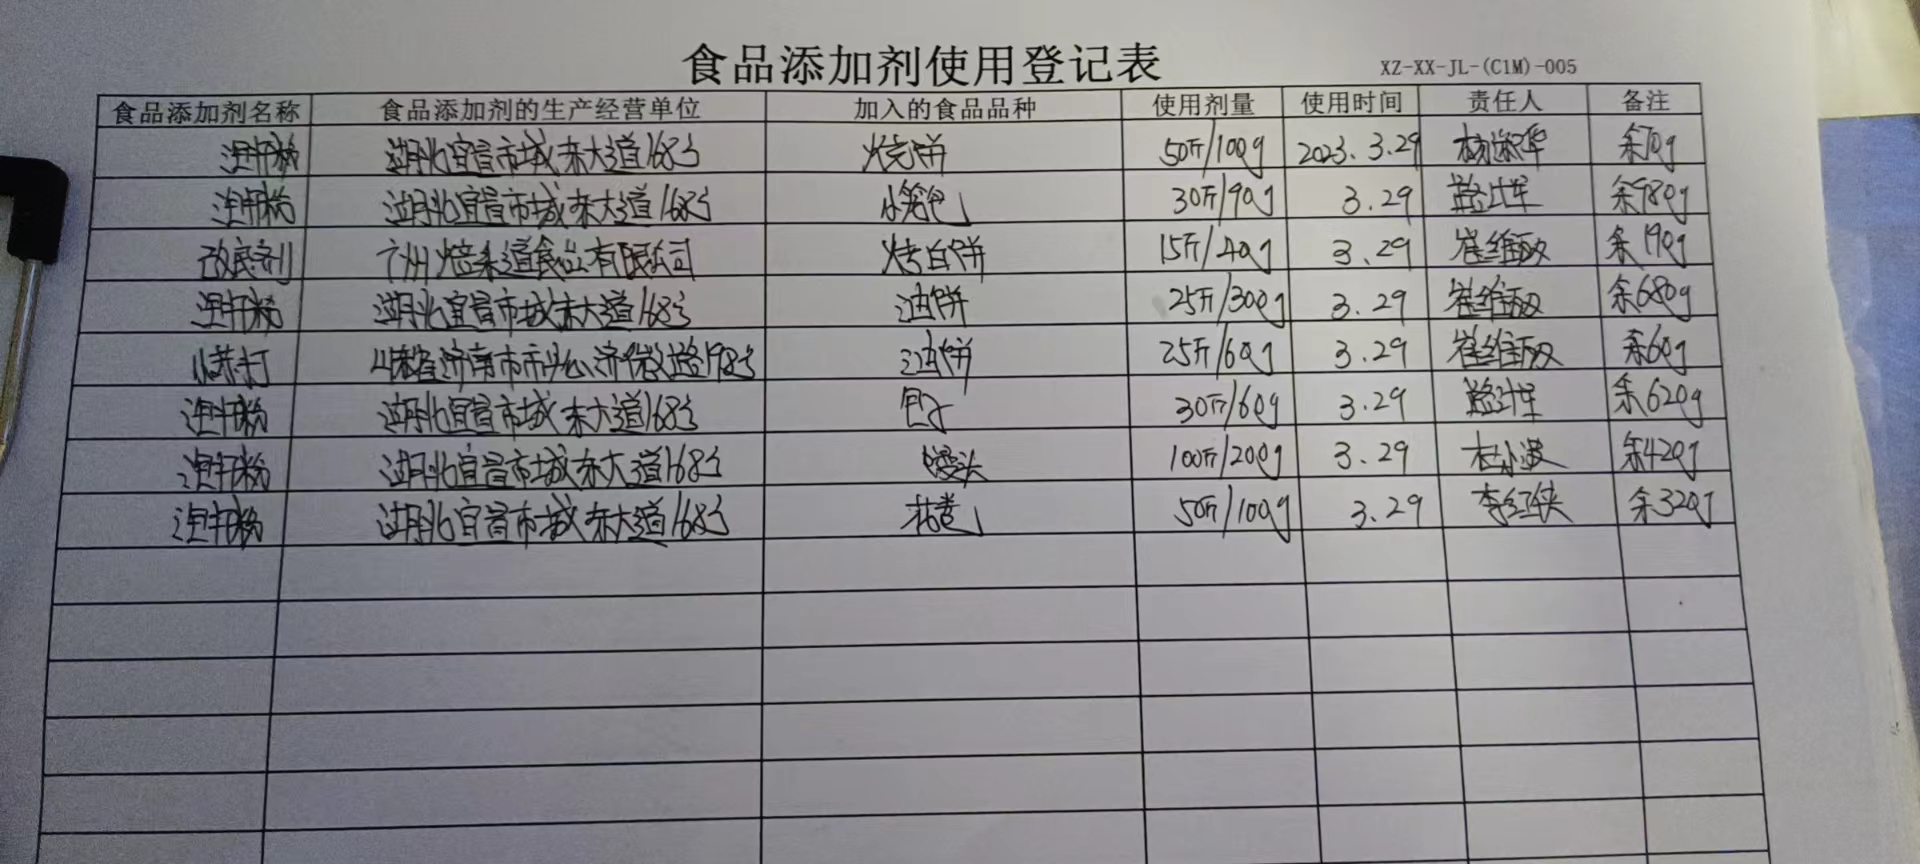 食品添加剂使用登记表
XZ-XX-JL-(C1M)-005
食品添加剂名称 食品添加剂的生产经营单位 加入的食品品种 使用剂量 使用时间 责任人 备注
泡打粉 湖北宜昌市城东大道168号 烧饼 50斤/100g 2023.3.29 余70g
泡打粉 湖北宜昌市城东大道168号 小笼包 30斤/90g 3.29 余980g
改良剂 广州焙乐道食品有限公司 烤白饼 15斤/40g 3.29 崔维丽 余190g
泡打粉 湖北宜昌市城东大道168号 油饼 25斤/300g 3.29 崔维丽 余680g
小苏打 山东省济南市市中区 198号 油饼 25斤/60g 3.29 崔维丽 余60g
泡打粉 湖北宜昌市城东大道168号 包子 30斤/60g 3.29 余620g
泡打粉 湖北宜昌市城东大道168号 馒头 100斤/200g 3.29 杜小波 余420g
泡打粉 湖北宜昌市城东大道168号 花卷 50斤/100g 3.29 李红侠 余320g